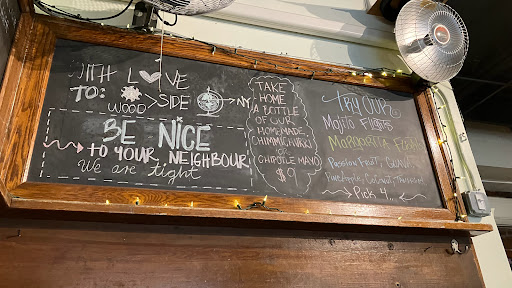 WITH LOVE
TO: WOOD SIDE NY
BE NICE
TO YOUR NEIGHBOUR
We are tight
TAKE
HOME
A BOTTLE
OF OUR
HOMEMADE
CHIMMICHURRI
OR
CHIPOTLE MAYO
$9
TRY OUR
Mojito Flights
MARGARITA
Passion Fruit,
Pineapple, Coconut,
Pick 4...